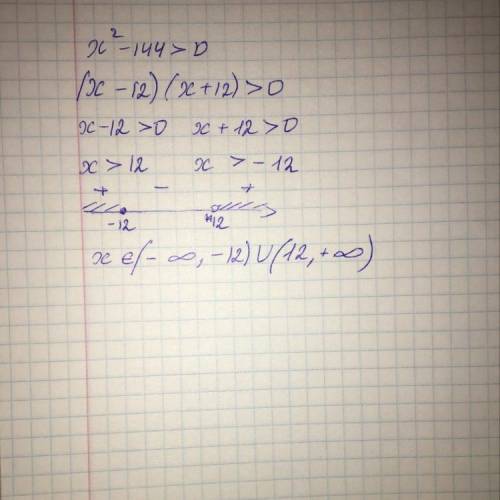 x² - 144 > 0
(x - 12) (x + 12) > 0
x - 12 > 0 x + 12 > 0
x > 12 x > - 12
+ - +
-12 +12
x ∈ (- ∞, -12) ∪ (12, + ∞)